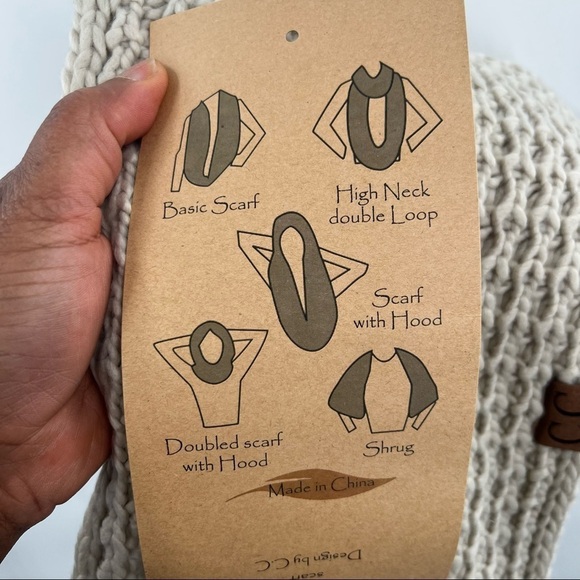 Basic Scarf
High Neck
double Loop
Scarf
with Hood
Doubled scarf
with Hood
Shrug
Made in China
Design by C.C
scarf
CC